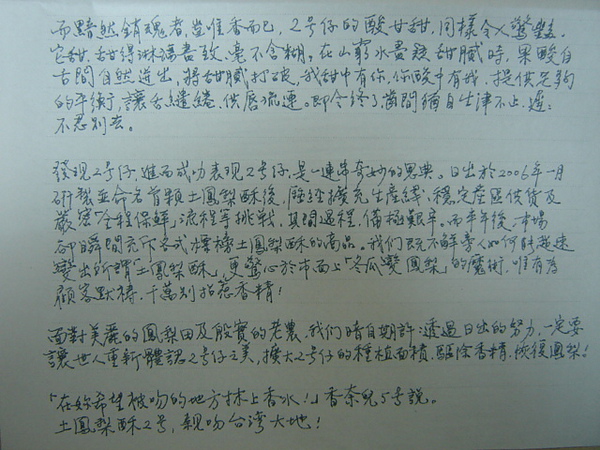 而黯然銷魂者，豈唯香而已，2号仔的酸甘甜，同樣令人驚豔。
它甜，甜得淋漓盡致、毫不含糊。在山窮水盡疑甜膩時，果酸自
古間自然迸出，將甜膩打破，我甜中有你，你酸中有我，提供足夠
的平衡，讓舌繾綣、供唇流連。即令終了，齒間猶自生津不止，遲遲
不忍別去。
發現2号仔，進而成功表現2号仔，是一連串奇妙的恩典。日出於2006年一月
研製並命名首顆土鳳梨酥後，歷經擴充生產線、穩定產區供貨及
嚴密"全程保鮮"流程等挑戰，其間過程，備極艱辛。而半年後，市場
卻瞬間充斥各式樣樣土鳳梨酥的商品。我們既不解旁人如何能神速
變出所謂"土鳳梨酥"，更驚心於市面上「冬瓜變鳳梨」的魔術，唯有為
顧客默禱，千萬別招惹香精！
面對美麗的鳳梨田及殷實的老農，我們暗自期許：透過日出的努力，一定要
讓世人重新體認2号仔之美，擴大2号仔的種植面積，驅除香精，恢復鳳梨！
「在妳希望被吻的地方抹上香水！」香奈兒5号說。
土鳳梨酥2号，親吻台灣大地！